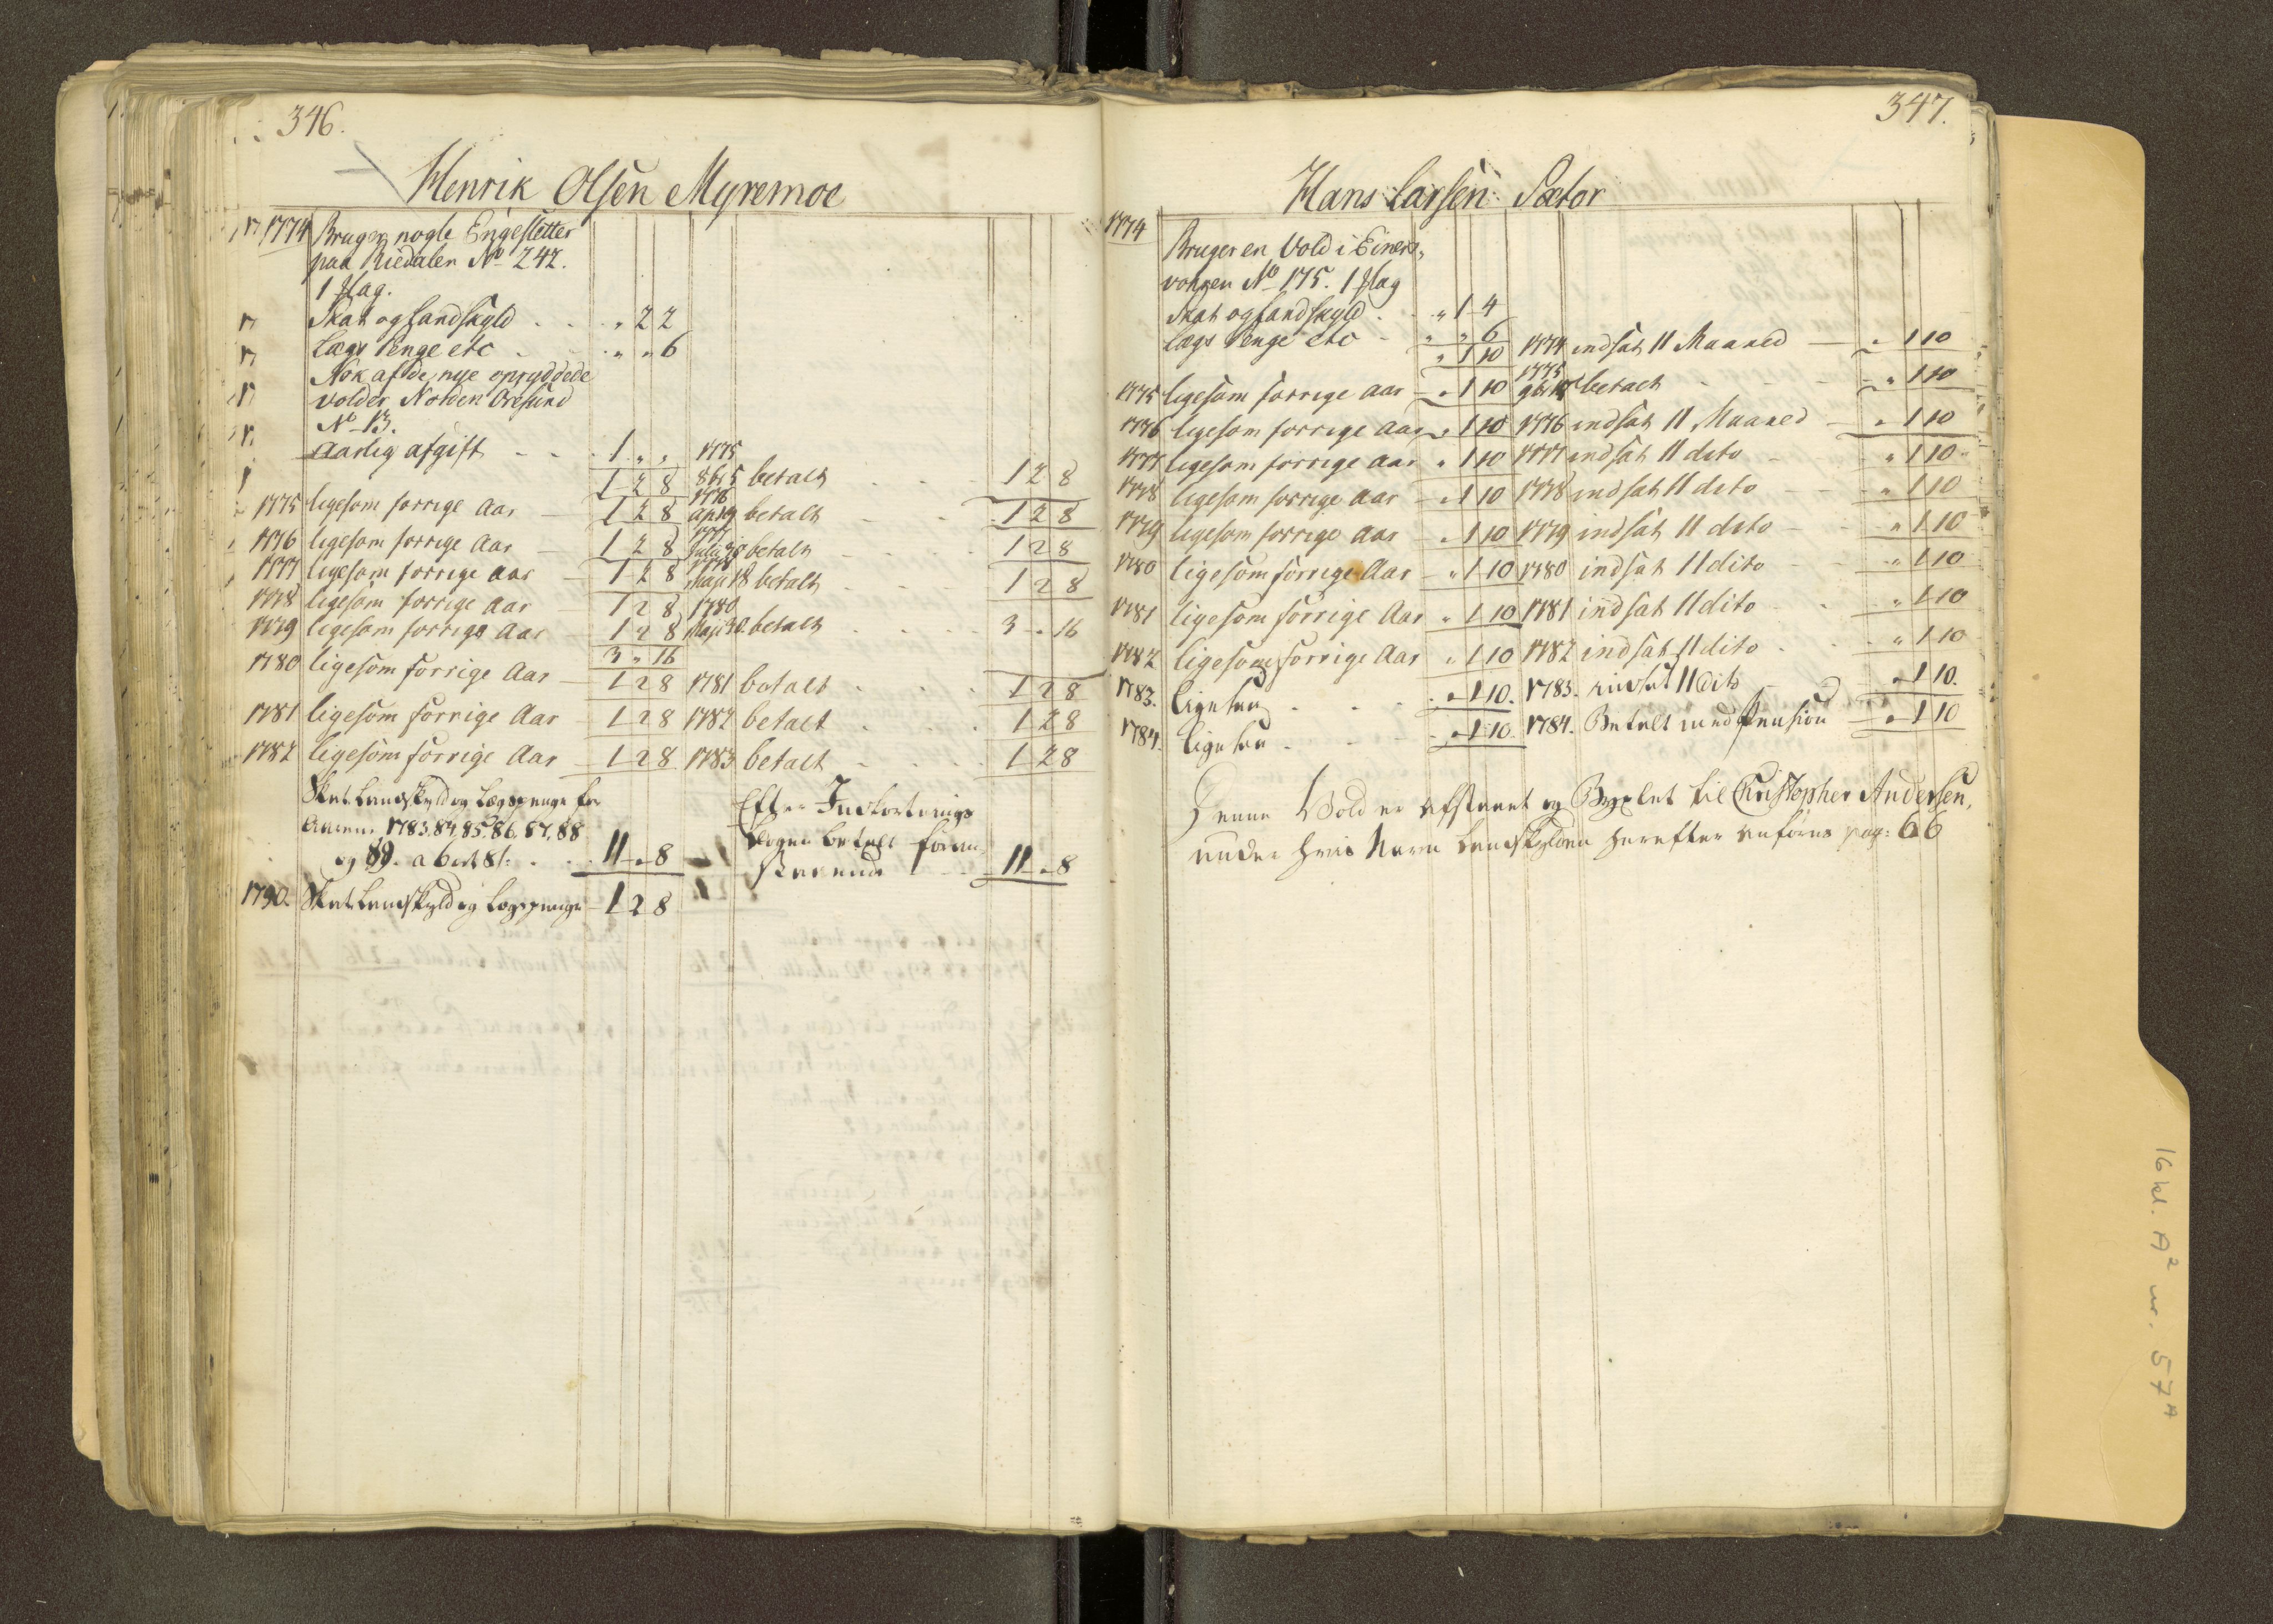 346.
Henrik Olsen Myremoe
1774 Bruger nogle Engesletter
paa Riedalen No 242.
1 flag.
Skat og Landskyld . . " 2 2
Lægs Penge etc . . " " 6
Nok af de nye opryddede
volder Norden Oresund
No 13.
Aarlig afgift - - . 1 " "
1 2 8 1775 8br 5 betalt . . . 1 2 8
1775 ligesom forrige Aar - 1 2 8 1776 apr 9 betalt - - 1 2 8
1776 ligesom forrige Aar - 1 2 8 1777 Julii 30 betalt - - 1 2 8
1777 ligesom forrige Aar - 1 2 8 1778 Maji 18 betalt . . 1 2 8
1778 ligesom forrige Aar - 1 2 8
1779 ligesom forrige Aar - 1 2 8 1780 Maji 30. betalt . . . . 3 " 16
3 " 16
1780 ligesom forrige Aar - 1 2 8 1781 betalt . . . . 1 2 8
1781 ligesom forrige Aar - 1 2 8 1782 betalt . . . 1 2 8
1782 ligesom forrige Aar - 1 2 8 1783 betalt - . . . 1 2 8
Skat Landskyld og Lægspenge for
Aarene 1783. 84. 85. 86. 87. 88
og 89. a 6 ort 8 s: . . 11 " 8
Efter Indfortnings
bogen betalt foran
staaende - - 11 " 8
1790. Skat Landskyld og Lægspenge - 1 2 8
347.
Hans Larsen Sætor
1774
Bruger en Vold i Einer,
vohlen No 175. 1 flag
Skat og Landskyld . . " 1 4
Lægs Penge etc - " " 6
" 1 10 1774 indsat 11 Maaned - " 1 10
1775 ligesom forrige Aar - " 1 10 1775 9br betalt - - - " 1 10
1776 ligesom forrige Aar " 1 10 1776 indsat 11 Maaned - " 1 10
1777 ligesom forrige Aar " 1 10 1777 indsat 11 dito - " 1 10
1778 ligesom forrige Aar - " 1 10 1778 indsat 11 dito - - " 1 10
1779 ligesom forrige Aar - " 1 10 1779 indsat 11 dito - - " 1 10
1780 ligesom forrige Aar - " 1 10 1780 indsat 11 dito - - " 1 10
1781 ligesom forrige Aar " 1 10 1781 indsat 11 dito - . " 1 10
1782 ligesom forrige Aar " 1 10 1782 indsat 11 dito . . " 1 10
1783. Ligesaa . . . " 1 10. 1783. indsat 11 dito - " 1 10.
1784. Ligesaa - - - " 1 10. 1784. Betalt med Pension - " 1 10
Denne Vold er afstaaet og Bøxlet til Christopher Andersen,
under hvis Navn Landskylden herefter anføres pag: 66
16 kl. A2 nr. 57A